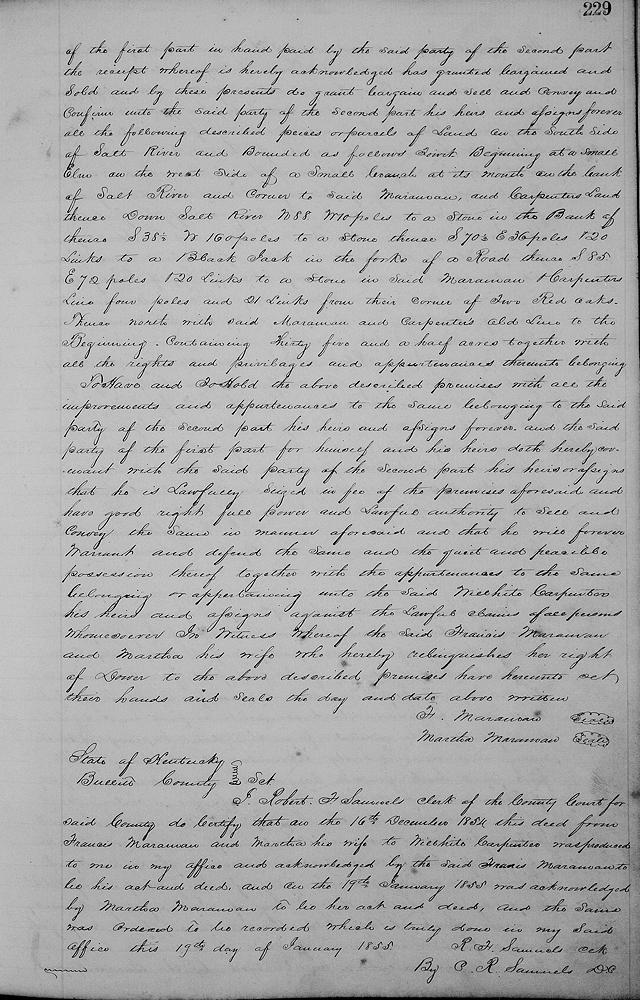 229
of the first part in hand paid by the said party of the second part
the receipt whereof is hereby acknowledged has granted bargained and
Sold and by these presents do grant bargain and sell and Convey and
Confirm unto the said party of the second part his heirs and assigns forever
all the following described pieces or parcels of Land on the South Side
of Salt River and Bounded as follows Towit Beginning at a Small
Elm on the west Side of a Small branch at its mouth on the bank
of Salt River and Corner to Said Maraman, and Carpenters Land
thence Down Salt River N 88 W 10 poles to a Stone in the Bank of
thence S 38½ W 160 poles to a Stone thence S 70½ E 36 poles & 20
Links to a Black Jack in the forks of a Road thence S 85
E 72 poles & 20 Links to a Stone in Said Maraman & Carpenters
Line four poles and 21 Links from their corner of Two Red oaks.
Thence north with said Maraman and Carpenters Old Line to the
Beginning. Containing Thirty five and a half acres together with
all the rights and privilages and appurtenances thereunto belonging
To Have and To Hold the above described premises with all the
improvements and appurtenances to the Same belonging to the Said
party of the Second part his heirs and assigns forever. and the Said
party of the first part for himself and his heirs doth hereby cov-
enant with the Said party of the Second part his heirs or assigns
that he is Lawfully Seized in fee of the premises aforesaid and
have good right full power and Lawful authority to Sell and
Convey the Same in manner aforesaid and that he will forever
Warrant and defend the Same and the quiet and peacible
possession thereof together with the appurtenances to the Same
belonging or appertaining unto the Said Wilhite Carpenter
his heirs and assigns against the Lawful claims of all persons
Whomsoever In Witness Whereof the Said Francis Maraman
and Martha his wife who hereby relinquishes her right
of Dower to the above described premises have hereunto set
their hands and Seals the day and date above written
F. Maraman Seal
Martha Maraman Seal
State of Kentucky
Bullitt County Sct
I. Robert. F Samuels Clerk of the County Court for
said County do Certify that on the 16th December 1854 this deed from
Francis Maraman and Martha his wife to Wilhite Carpenter was produced
to me in my office and acknowledged by the said Francis Maraman to
be his act and deed, and on the 19th January 1855 was acknowledged
by Martha Maraman to be her act and deed, and the Same
was ordered to be recorded which is truly done in my Said
office this 19th day of January 1855 R. F. Samuels Clk
By C. R. Samuels DC